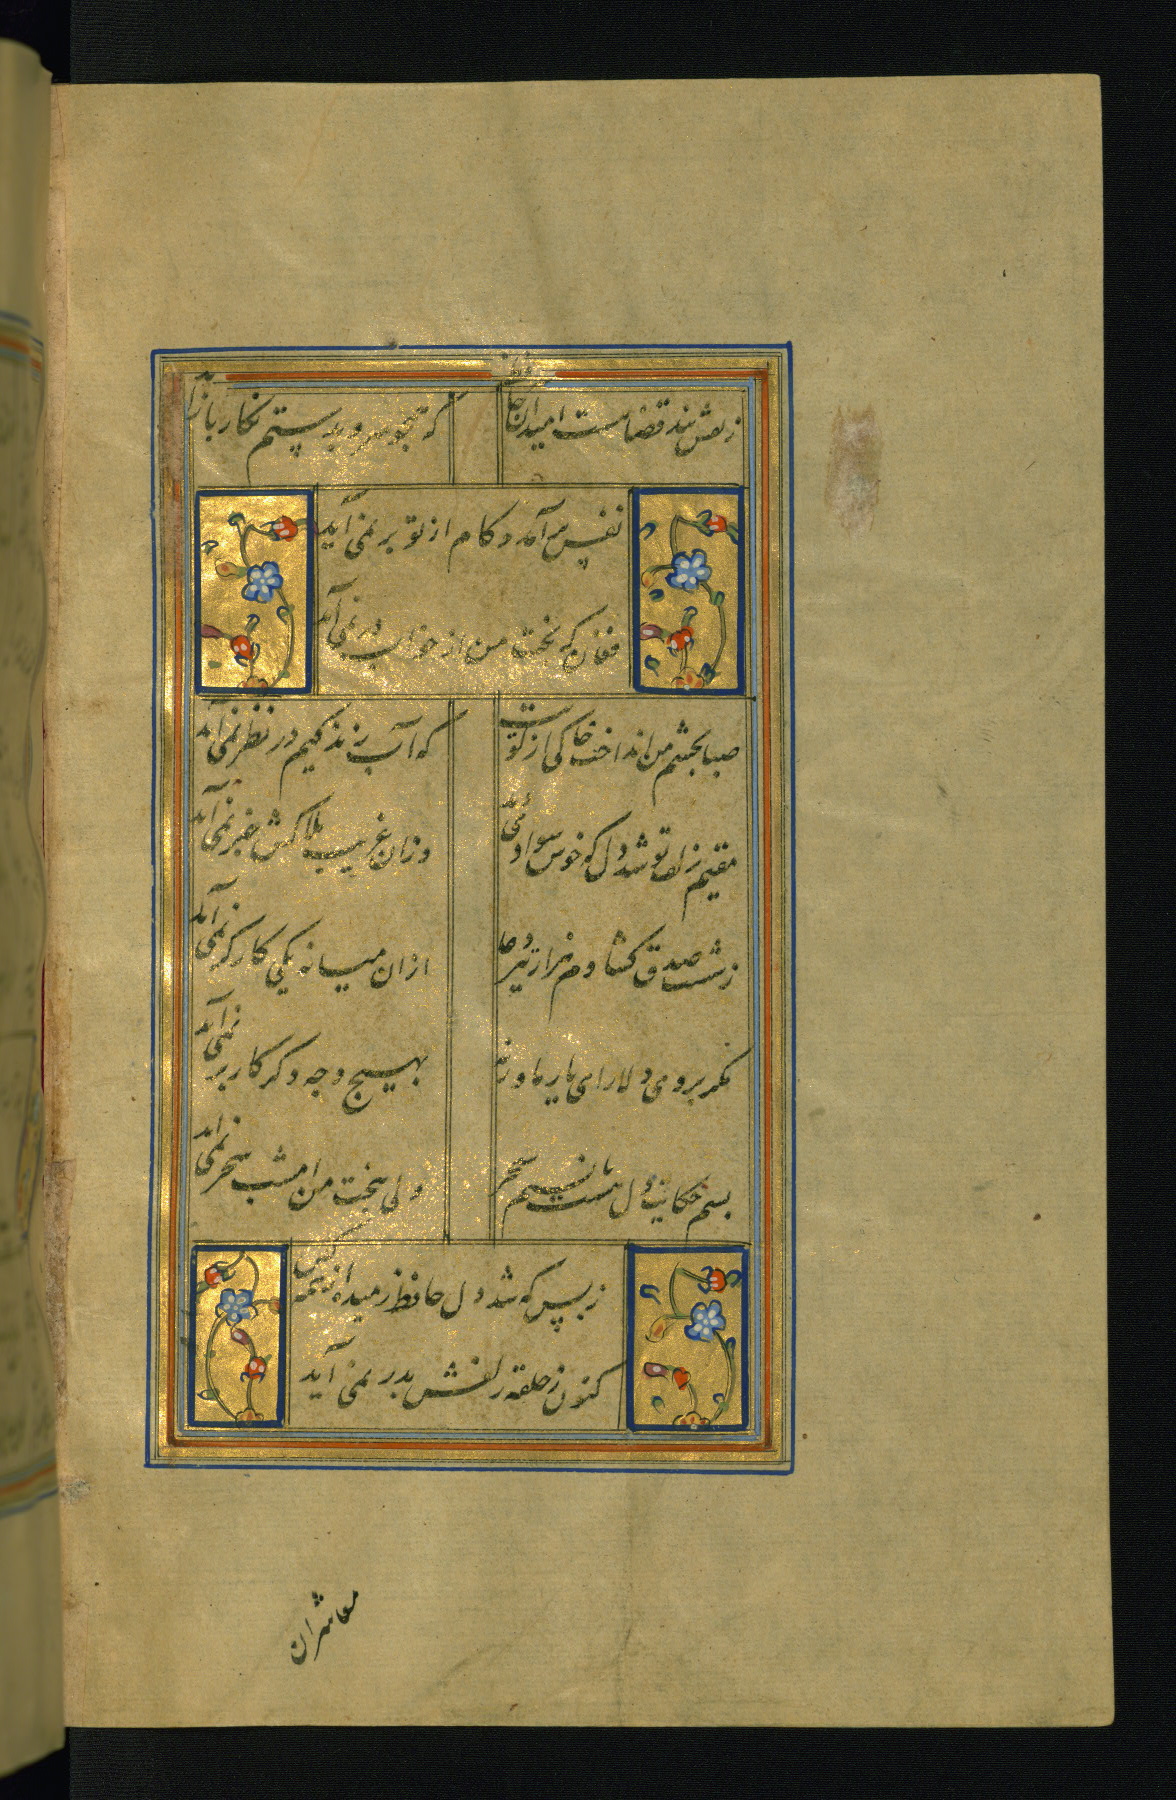 ز نقش بند قضا هست امید آن حافظ
که همچو سرو به دستم نگار باز آید
نفس برآمد و کام از تو بر نمی آید
فغان که بخت من از خواب در نمی آید
صبا بچشم من انداخت خاکی از کویت
که آب زندگیم در نظر نمی آید
مقیم زلف تو شد دل که خوش سوادی دید
وزان غریب بلاکش خبر نمی آید
ز شست صدق گشادم هزار تیر دعا
ازان میانه یکی کارگر نمی آید
مگر بروی دلارای یار ما ورنه
بهیچ وجه دگر کار بر نمی آید
بسم حکایت دل هست با نسیم سحر
ولی ببخت من امشب سحر نمی آید
ز بس که شد دل حافظ رمیده از همه کس
کنون ز حلقه زلفش بدر نمی آید
معاشران